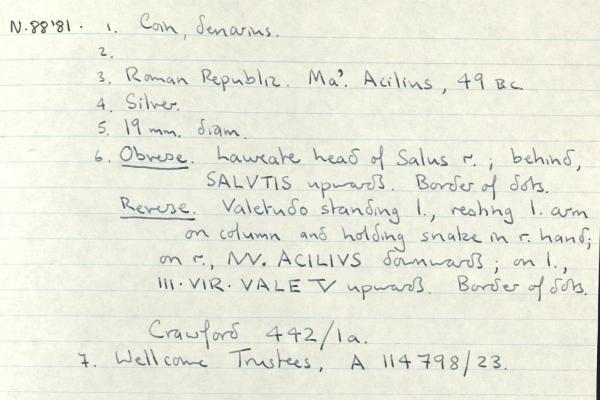 N.88'81. 1. Coin, denarius.
2.
3. Roman Republic. Ma'. Acilius, 49 BC.
4. Silver.
5. 19 mm. diam.
6. Obverse. Laureate head of Salus r.; behind,
SALVTIS upwards. Border of dots.
Reverse. Valetudo standing l., resting l. arm
on column and holding snake in r. hand;
on r., MV. ACILIVS downwards; on l.,
III·VIR·VALETV upwards. Border of dots.
Crawford 442/1a.
7. Wellcome Trustees, A 114798/23.